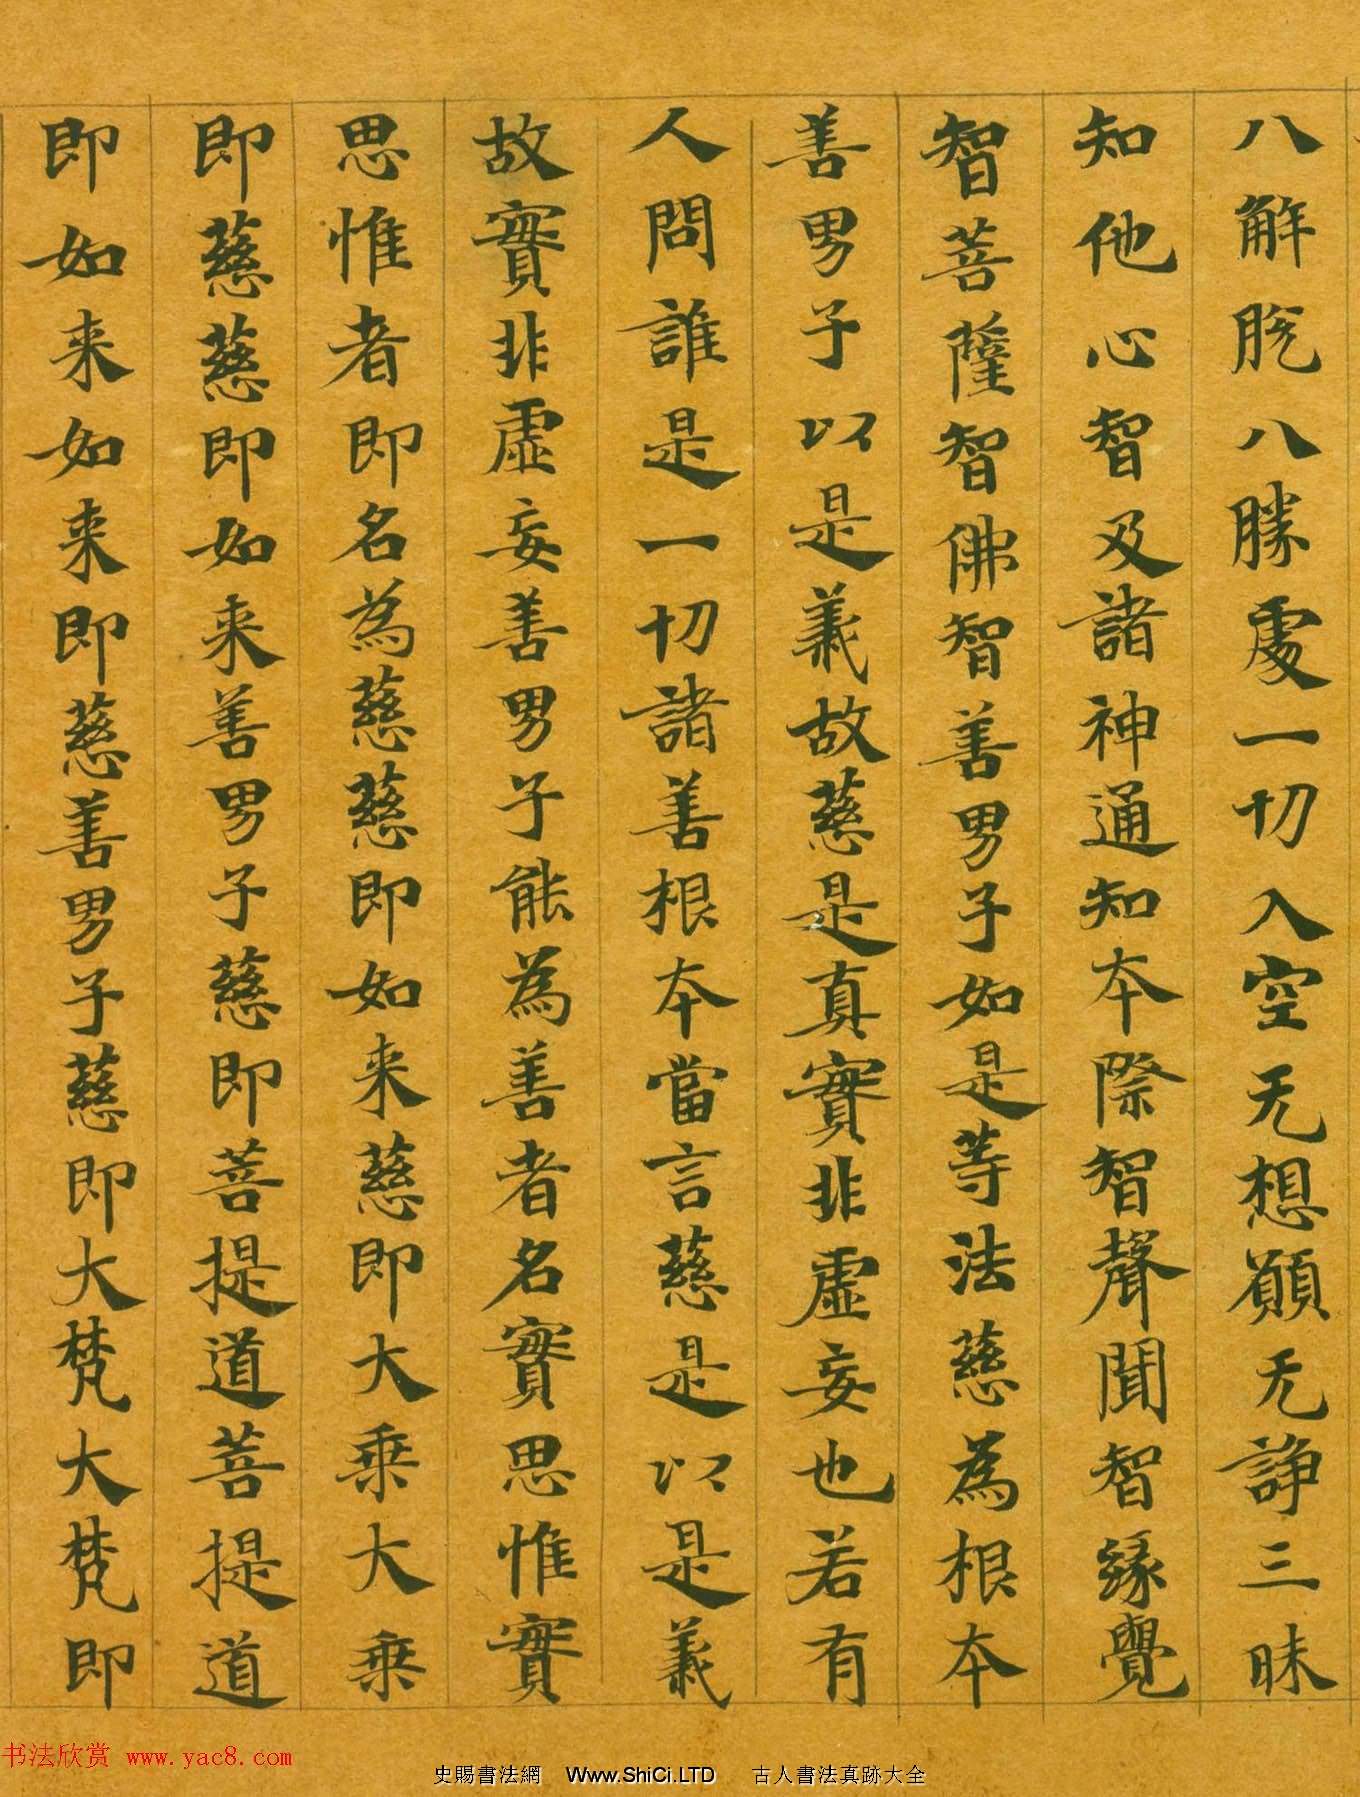 八解脫八勝處一切入空无想願无諍三昧
知他心智及諸神通知本際智聲聞智緣覺
智菩薩智佛智善男子如是等法慈為根本
善男子以是義故慈是真實非虛妄也若有
人問誰是一切諸善根本當言慈是以是義
故實非虛妄善男子能為善者名實思惟實
思惟者即名為慈慈即如来慈即大乗大乗
即慈慈即如来善男子慈即菩提道菩提道
即如来如来即慈善男子慈即大梵大梵即
书法欣赏 www.yac8.com
史賜書法網 Www.ShiCi.LTD 古人書法真跡大全